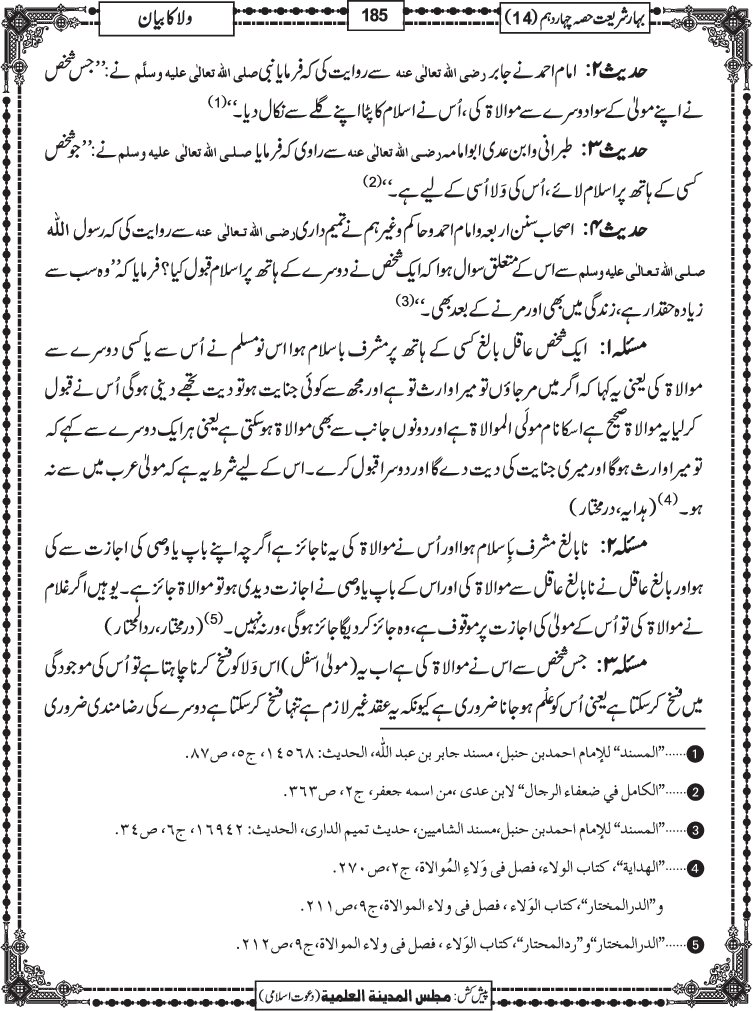 بہارشریعت حصہ چہاردہم (14)
185
ولا کا بیان
حدیث ۲: امام احمد نے جابر رضی اللہ تعالٰی عنہ سے روایت کی کہ فرمایا نبی صلی اللہ تعالٰی علیہ وسلَّم نے: ’’جس شخص
نے اپنے مولیٰ کے سوا دوسرے سے موالاۃ کی، اُس نے اسلام کا پٹا اپنے گلے سے نکال دیا۔‘‘(1)
حدیث ۳: طبرانی وابن عدی ابوامامہ رضی اللہ تعالٰی عنہ سے راوی کہ فرمایا صلی اللہ تعالٰی علیہ وسلم نے: ’’جو شخص
کسی کے ہاتھ پر اسلام لائے، اُس کی وَلا اُسی کے لیے ہے۔‘‘(2)
حدیث ۴: اصحاب سنن اربعہ و امام احمد و حاکم وغیرہم نے تمیم داری رضی اللہ تعالٰی عنہ سے روایت کی کہ رسول اللّٰہ
صلی اللہ تعالٰی علیہ وسلم سے اس کے متعلق سوال ہوا کہ ایک شخص نے دوسرے کے ہاتھ پر اسلام قبول کیا؟ فرمایا کہ ’’وہ سب سے
زیادہ حقدار ہے، زندگی میں بھی اور مرنے کے بعد بھی۔‘‘(3)
مسئلہ ۱: ایک شخص عاقل بالغ کسی کے ہاتھ پر مشرف باسلام ہوا اس نو مسلم نے اُس سے یا کسی دوسرے سے
موالاۃ کی یعنی یہ کہا کہ اگر میں مرجاؤں تو میرا وارث تو ہے اور مجھ سے کوئی جنایت ہو تو دیت تجھے دینی ہوگی اُس نے قبول
کرلیا یہ موالاۃ صحیح ہے اسکا نام مولَی الموالاۃ ہے اور دونوں جانب سے بھی موالاۃ ہوسکتی ہے یعنی ہر ایک دوسرے سے کہے کہ
تو میرا وارث ہوگا اور میری جنایت کی دیت دے گا اور دوسرا قبول کرے۔ اس کے لیے شرط یہ ہے کہ مولیٰ عرب میں سے نہ
ہو۔(4) (ہدایہ، درمختار)
مسئلہ ۲: نابالغ مشرف بِاسلام ہوا اور اُس نے موالاۃ کی یہ ناجائز ہے اگرچہ اپنے باپ یا وصی کی اجازت سے کی
ہو اور بالغ عاقل نے نابالغ عاقل سے موالاۃ کی اور اس کے باپ یا وصی نے اجازت دیدی ہو تو موالاۃ جائز ہے۔ یوہیں اگر غلام
نے موالاۃ کی تو اُس کے مولیٰ کی اجازت پر موقوف ہے، وہ جائز کردیگا جائز ہوگی، ورنہ نہیں۔(5) (درمختار، ردالمحتار)
مسئلہ ۳: جس شخص سے اس نے موالاۃ کی ہے اب یہ (مولیٰ اسفل) اس وَلا کو فسخ کرنا چاہتا ہے تو اُس کی موجودگی
میں فسخ کرسکتا ہے یعنی اُس کو عِلْم ہوجانا ضروری ہے کیونکہ یہ عقد غیر لازم ہے تنہا فسخ کرسکتا ہے دوسرے کی رضامندی ضروری
1......”المسند“ للإمام احمدبن حنبل، مسند جابر بن عبد اللّٰہ، الحديث: ١٤٥٦٨، ج٥، ص٨٧.
2......”الكامل في ضعفاء الرجال“ لابن عدى ،من اسمه جعفر، ج٢، ص٣٦٣.
3......”المسند“ للإمام احمدبن حنبل،مسند الشاميين، حديث تميم الدارى، الحديث: ١٦٩٤٢، ج٦، ص٣٤.
4......”الهداية“، كتاب الولاء، فصل فى وَلاءِ المُوالاة، ج٢،ص٢٧٠.
و”الدرالمختار“،كتاب الوَلاء ، فصل فى ولاء الموالاة،ج٩،ص٢١١.
5......”الدرالمختار“و”ردالمحتار“،كتاب الوَلاء ، فصل فى ولاء الموالاة،ج٩،ص٢١٢.
پیش کش: مجلس المدینة العلمیة (دعوت اسلامی)